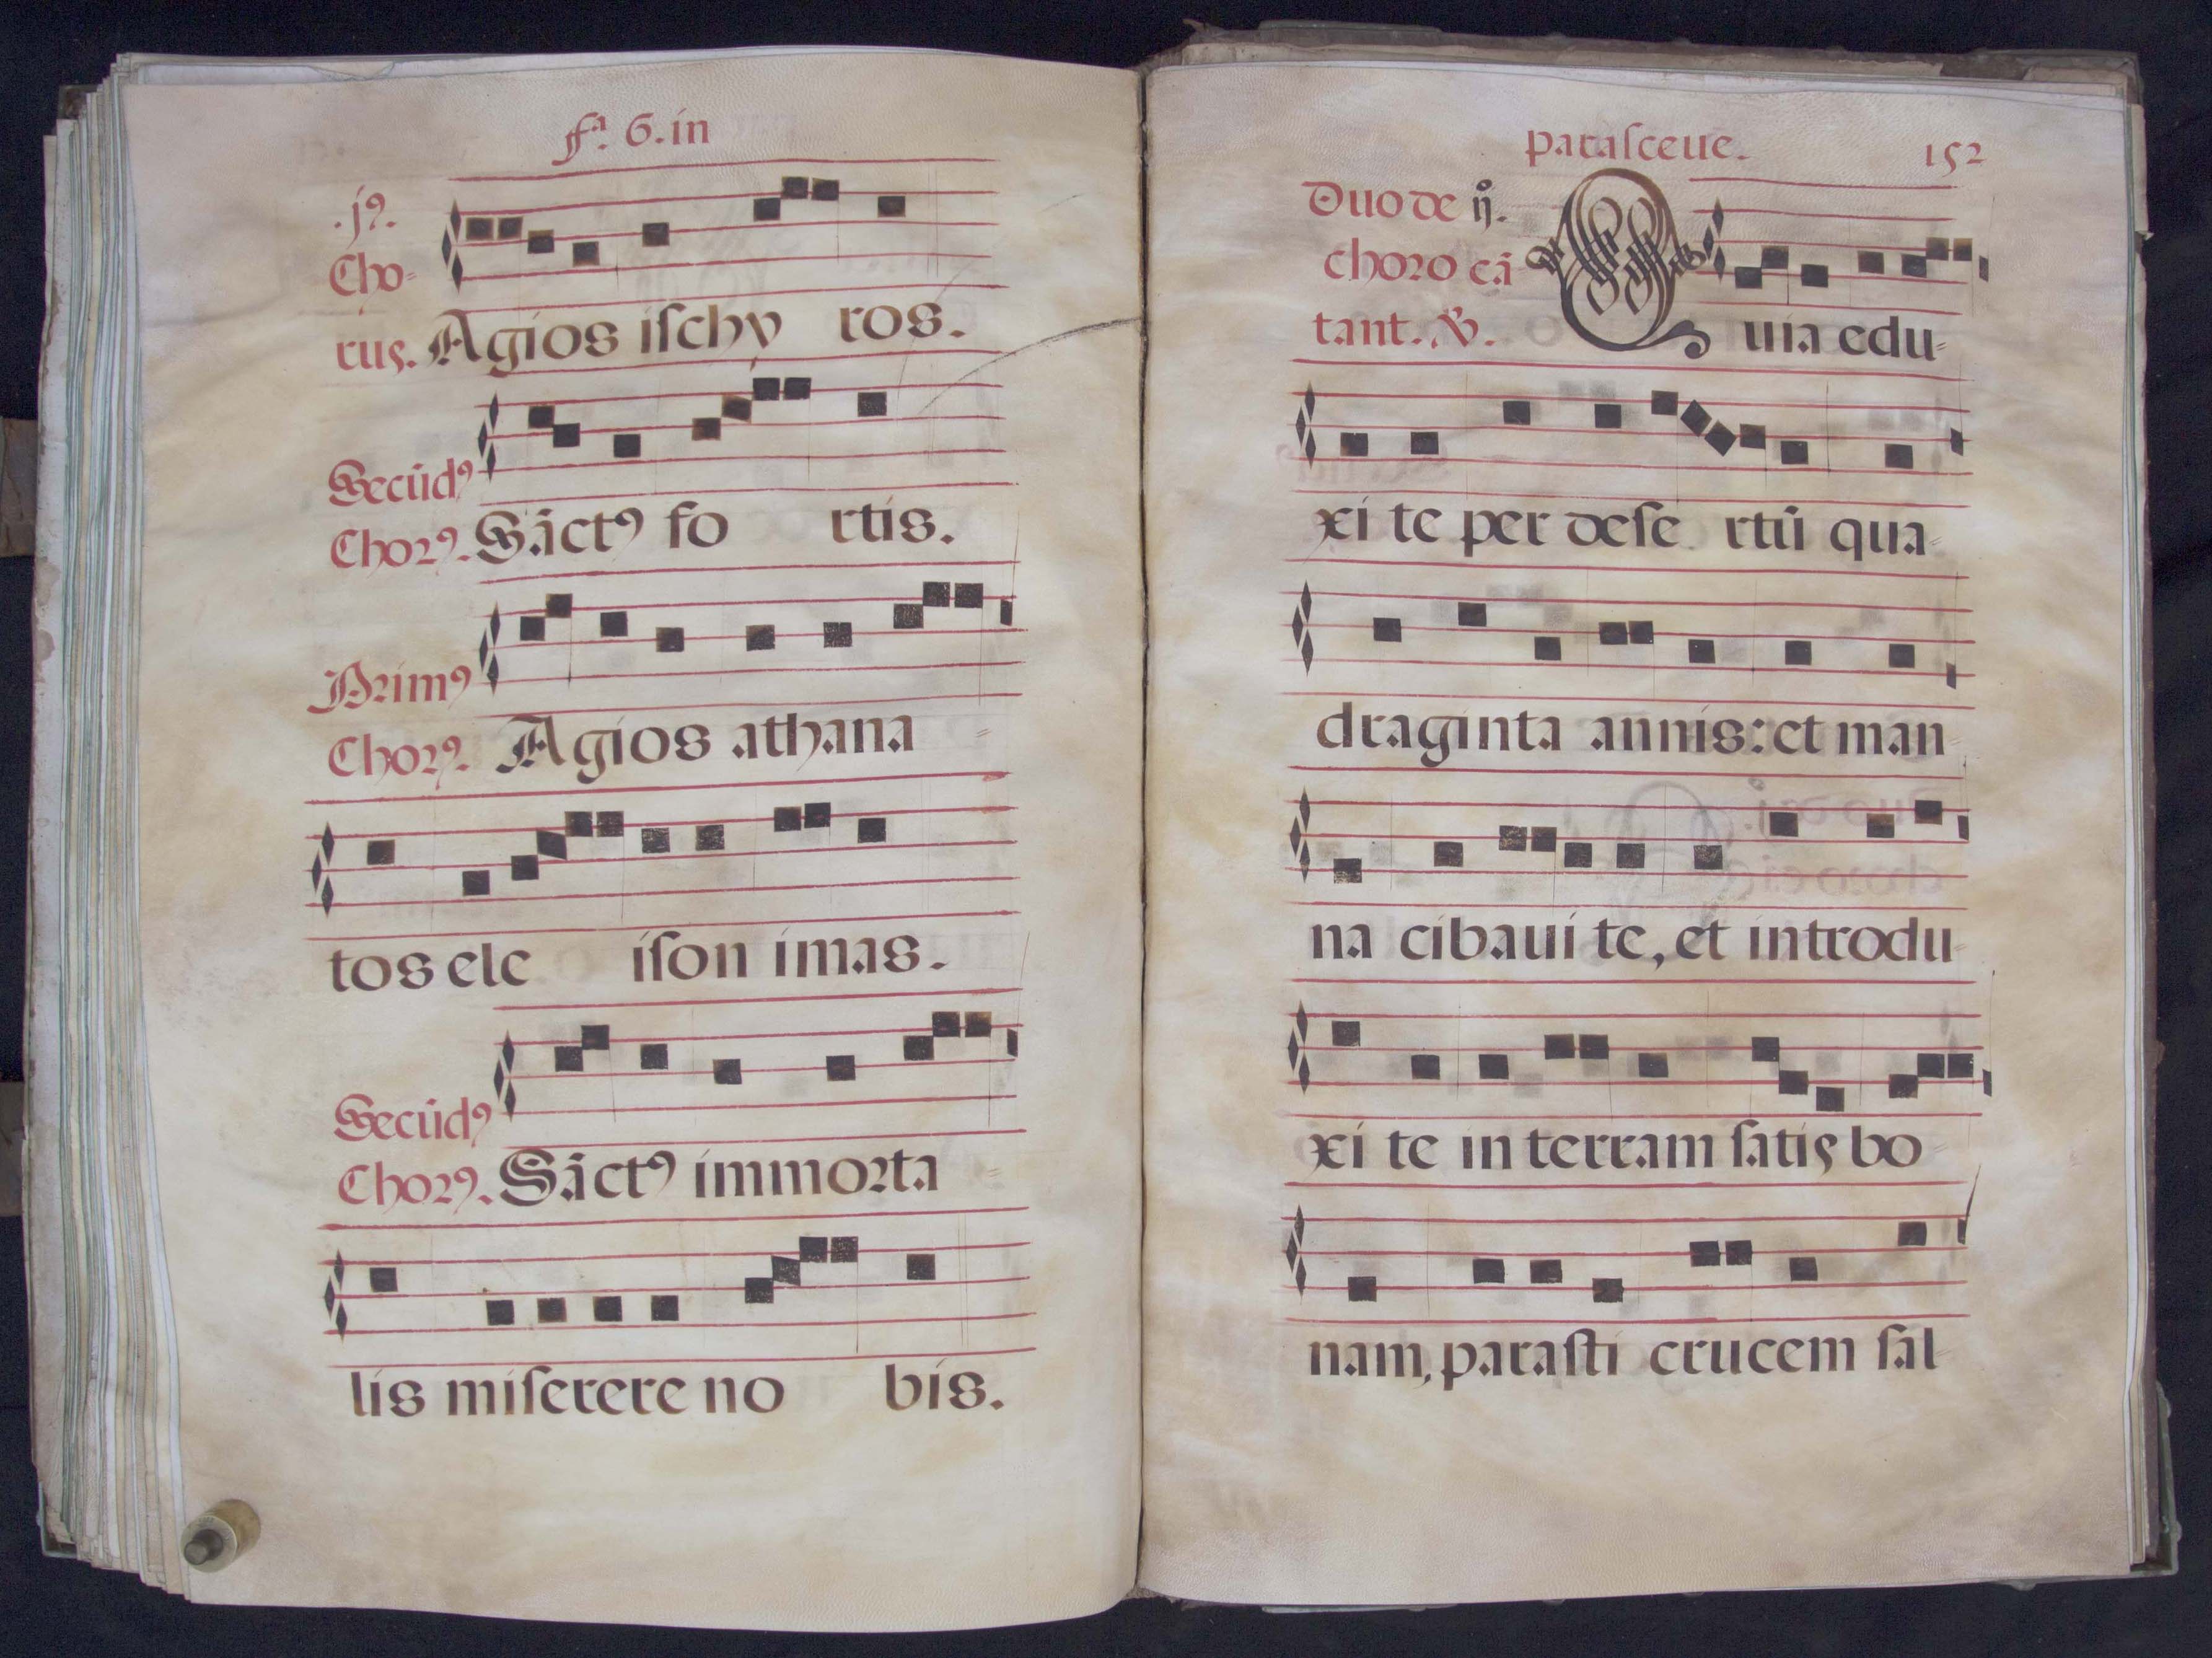 fª. 6. in
.jꝯ.
Cho-
rus. Agios iſchy ros.
Secūdꝯ
Chorꝯ. Sāctꝯ fo rtis.
Primꝯ
Chorꝯ. Agios athana=
tos ele iſon imas.
Secūdꝯ
Chorꝯ. Sāctꝯ immorta=
lis miſerere no bis.
paraſceue. 152
Duo de ij.
choro cā
tant. ℣. Quia edu-
xi te per deſe rtū qua-
draginta annis: et man-
na cibaui te, et introdu-
xi te in terram ſatis bo-
nam, paraſti crucem ſal